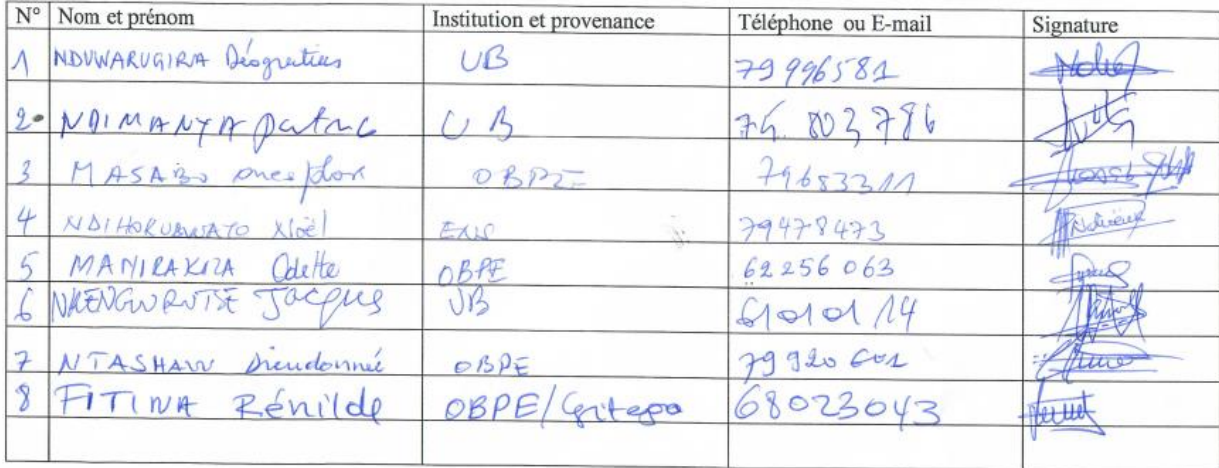 N° Nom et prénom Institution et provenance Téléphone ou E-mail Signature
1 NDUWARUGIRA Déogratias UB 79 996581
2 NDIMANYA Patric UB 74 803 786
3 MASABO Onesphore OBPE 79683311
4 NDIHOKUBWAYO Noël ENS 79478473
5 MANIRAKIZA Odette OBPE 62 256 063
6 NKENGURUTSE Jacques UB 61010114
7 NTASHAVU Dieudonné OBPE 79 920 601
8 FITINA Rénilde OBPE/Gitega 68023043